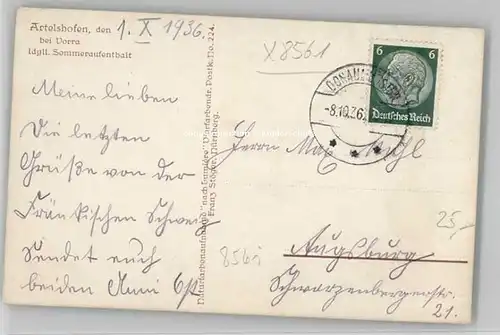 Artelshofen, den 1. X 1936.
bei Vorra
Idyll. Sommeraufenthalt
Meine lieben
Die letzten
Grüße von der
Fränkischen Schweiz
sendet euch
beiden Anni
Naturfarbenaufnahme "nach Lumière" Vierfarbendr. Postk. No. 224.
Franz Stöger, Nürnberg.
X 8561
6 6
Deutsches Reich
-8.10.36.
Herrn Max
Augsburg
Schwarzenbergerstr.
21.
25,-
8561